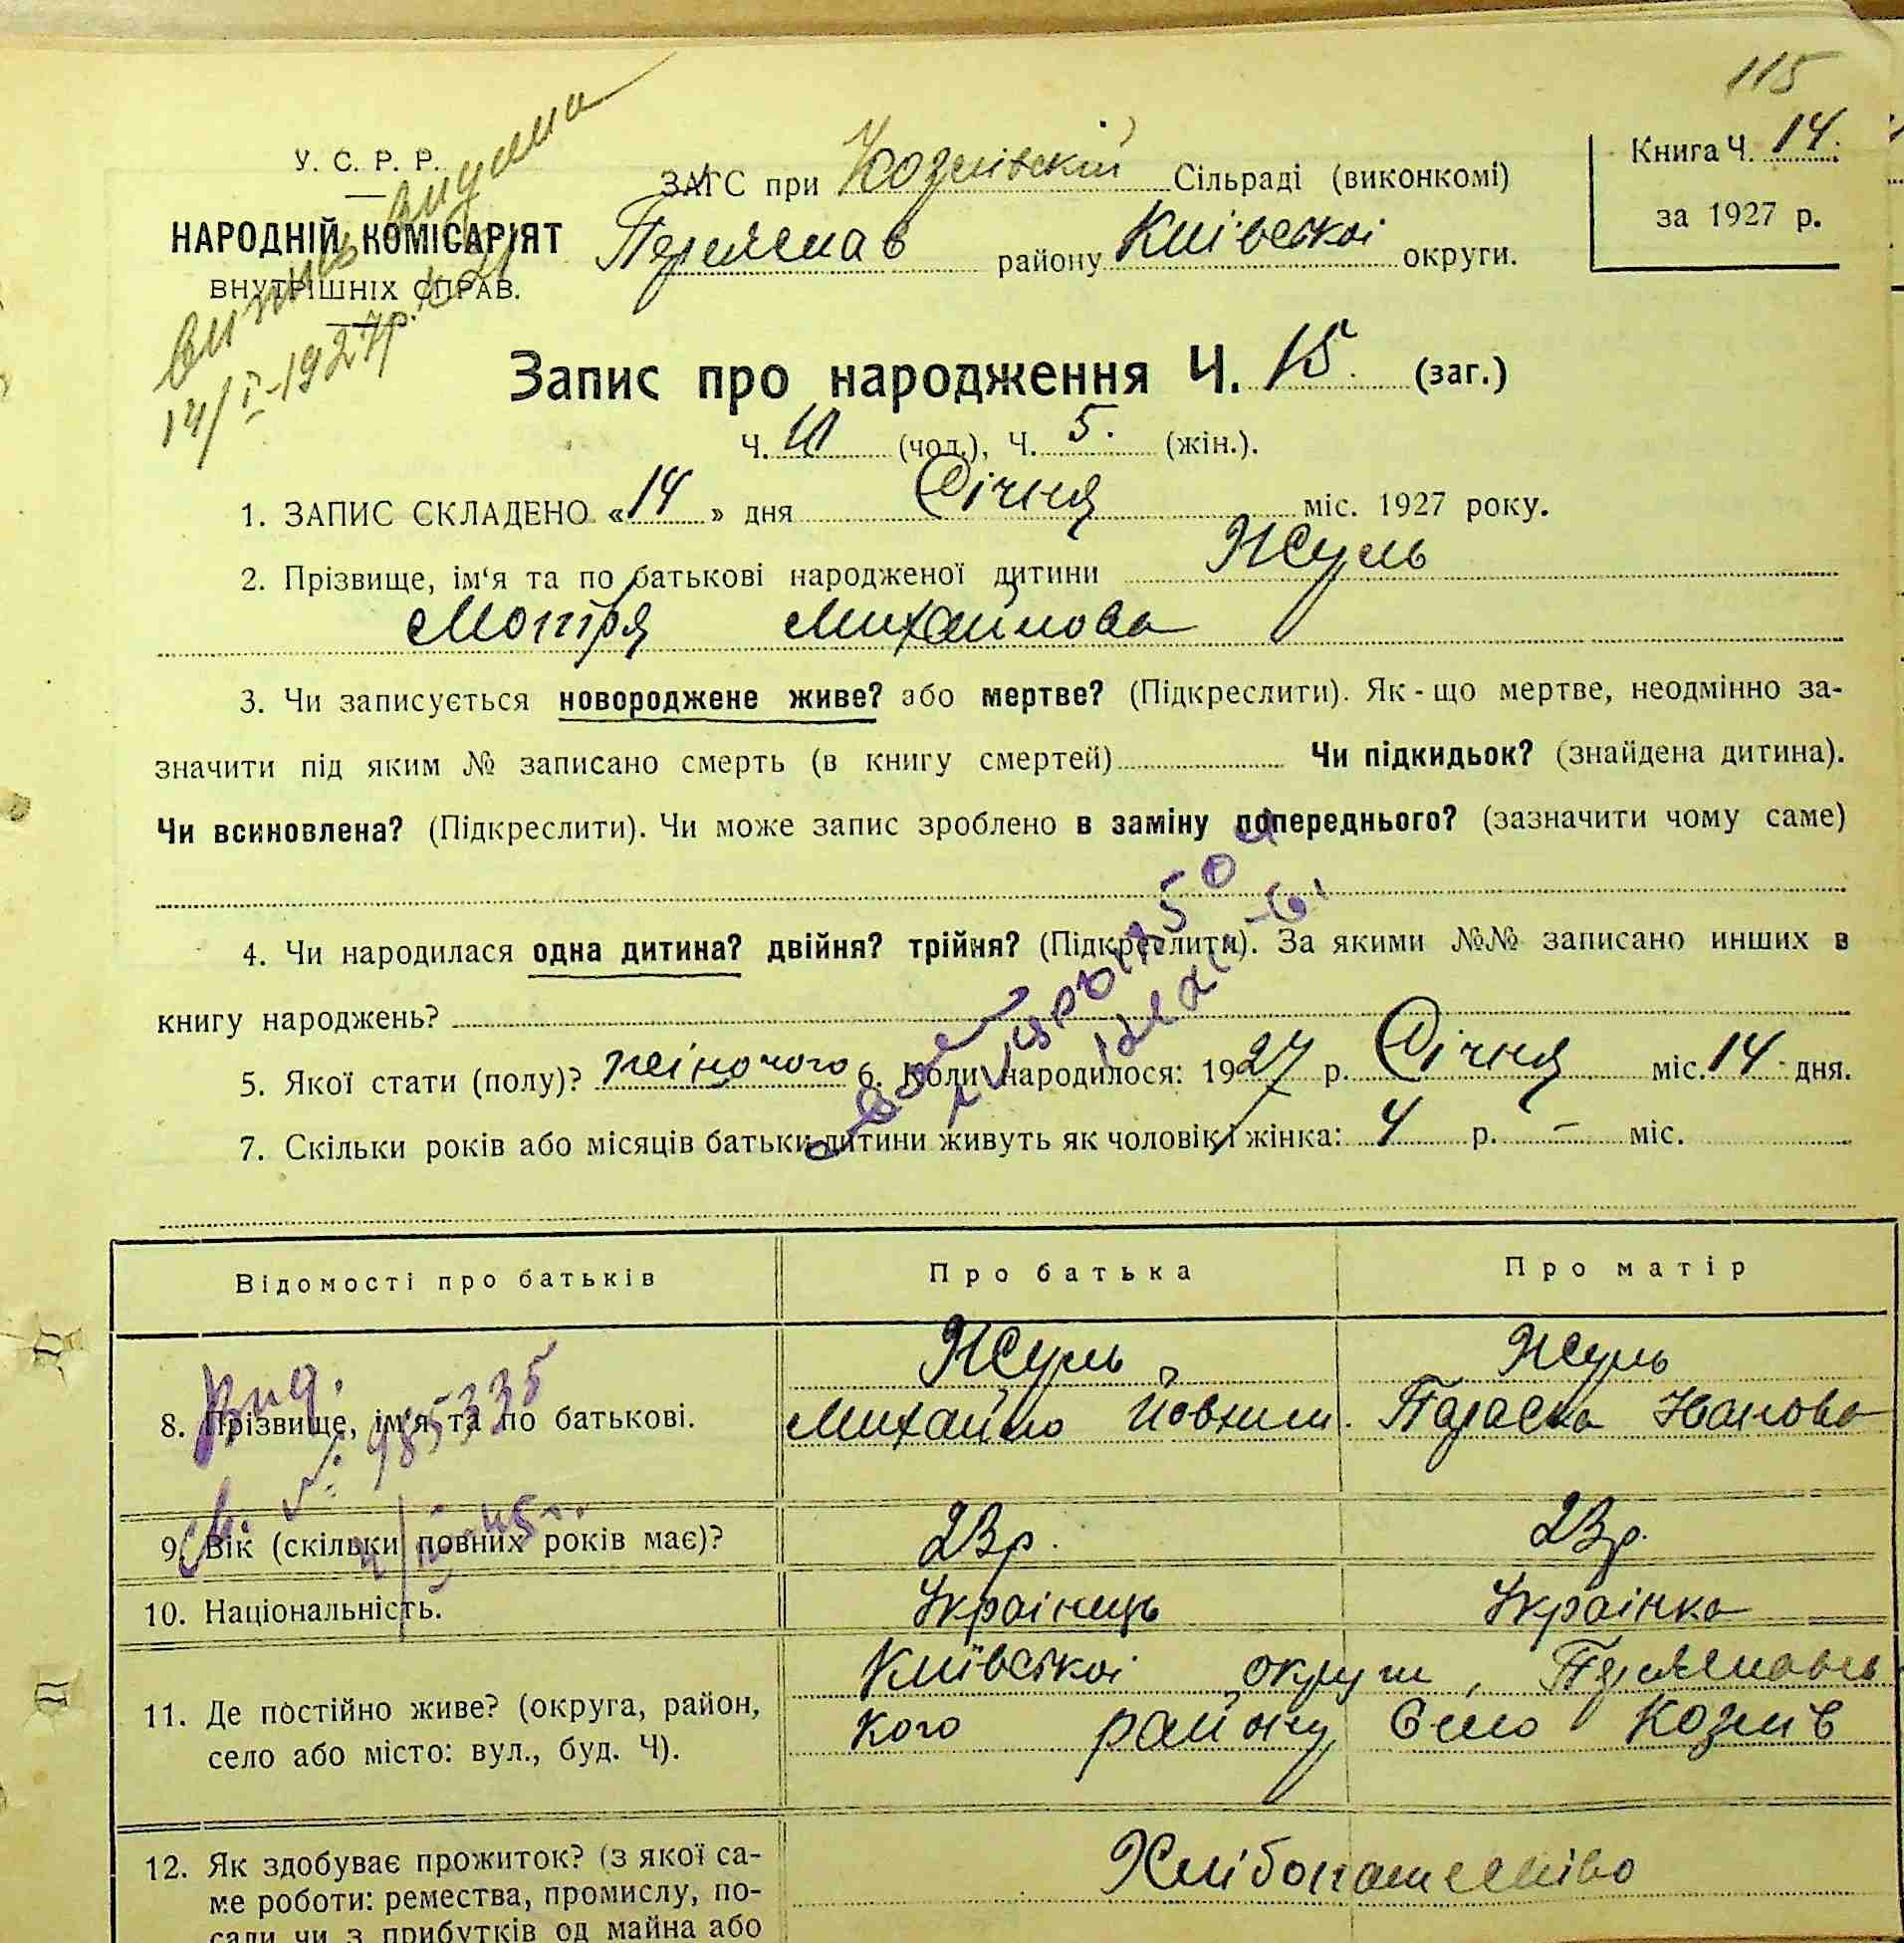 115
У. С. Р. Р.
НАРОДНІЙ КОМІСАРІЯТ
ВНУТРІШНІХ СПРАВ.
випись видана
14/I-1927р.
ЗАГС при Козлівскій Сільраді (виконкомі)
Переяслав району Київської округи.
Книга Ч. 14.
за 1927 р.
Запис про народження Ч. 15. (заг.)
Ч. 10 (чол.), Ч. 5. (жін.).
1. ЗАПИС СКЛАДЕНО «14» дня Січня міс. 1927 року.
2. Прізвище, ім‘я та по батькові народженої дитини Жуль
Мотря Михайлова
3. Чи записується новороджене живе? або мертве? (Підкреслити). Як-що мертве, неодмінно за-
значити під яким № записано смерть (в книгу смертей) Чи підкидьок? (знайдена дитина).
Чи всиновлена? (Підкреслити). Чи може запис зроблено в заміну попереднього? (зазначити чому саме)
4. Чи народилася одна дитина? двійня? трійня? (Підкреслити). За якими №№ записано инших в
книгу народжень?
5. Якої стати (полу)? жіночого 6. Коли народилося: 1927 р. Січня міс. 14 дня.
7. Скільки років або місяців батьки дитини живуть як чоловік і жінка: 4 р. – міс.
Відомості про батьків Про батька Про матір
8. Прізвище, ім‘я та по батькові.
Жуль Жуль
Михайло Йовхим. Параска Іванова
Вид.
№: 985335
9. Вік (скільки повних років має)? 23р. 23р.
10. Національність. Українець Українка
11. Де постійно живе? (округа, район,
село або місто: вул., буд. Ч).
Київської округи, Переяславсь
кого району Село Козлів
12. Як здобуває прожиток? (з якої са-
ме роботи: ремества, промислу, по-
сади чи з прибутків од майна або
Хліборашество